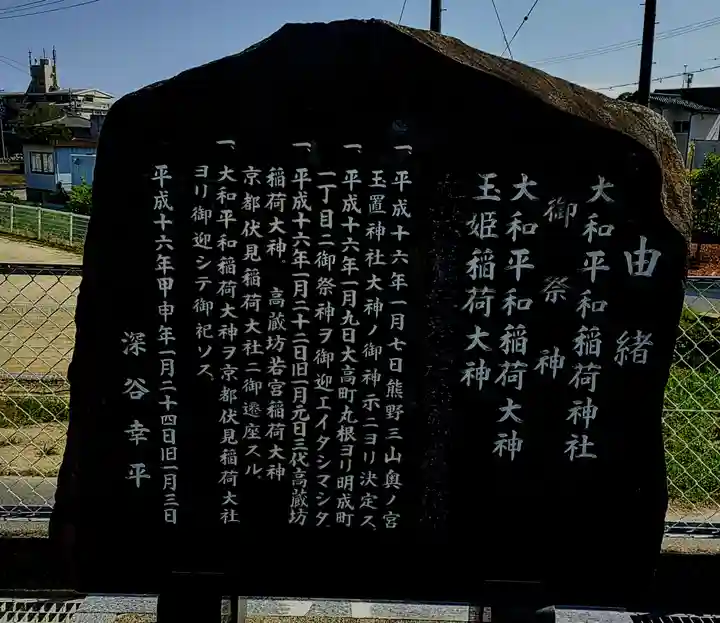 由緒
大和平和稲荷神社
御祭神
大和平和稲荷大神
玉姫稲荷大神
一、平成十六年一月七日熊野三山奥ノ宮
玉置神社大神ノ御神示ニヨリ決定ス、
一、平成十六年一月九日大高町丸根ヨリ明成町
一丁目ニ御祭神ヲ御迎エイタシマシタ、
一、平成十六年一月二十二日旧一月元日三代高蔵坊
稲荷大神、高蔵坊若宮稲荷大神
京都伏見稲荷大社ニ御遷座スル、
一、大和平和稲荷大神ヲ京都伏見稲荷大社
ヨリ御迎シテ御祀ソス、
平成十六年甲申年一月二十四日旧一月三日
深谷幸平